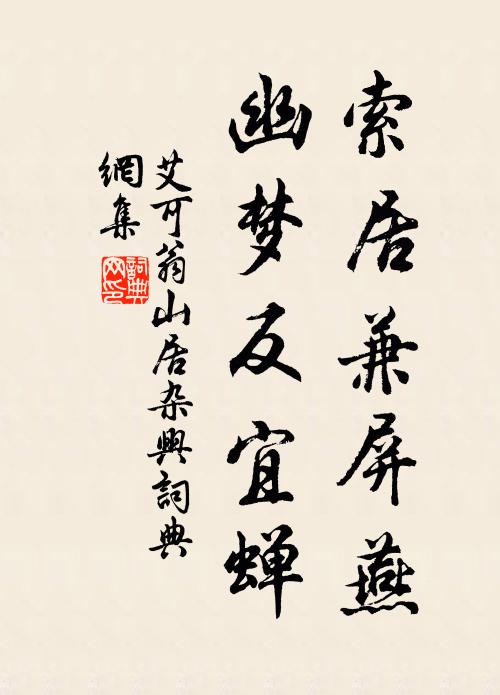 索居兼屏燕
幽梦反宜蝉
艾可翁山居杂興詞典
網集
詞典網印